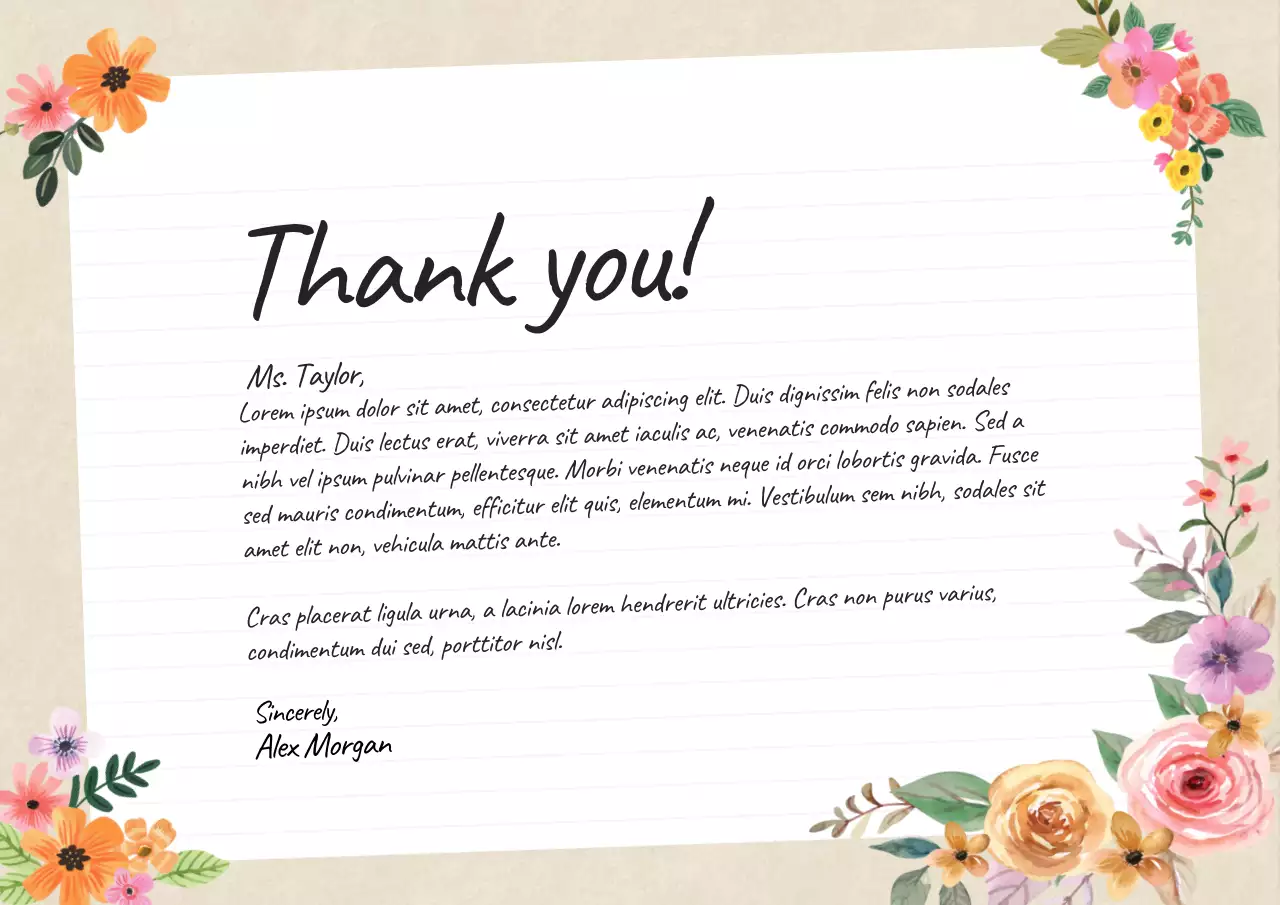 Thank you!
Ms. Taylor,
Lorem ipsum dolor sit amet, consectetur adipiscing elit. Duis dignissim felis non sodales
imperdiet. Duis lectus erat, viverra sit amet iaculis ac, venenatis commodo sapien. Sed a
nibh vel ipsum pulvinar pellentesque. Morbi venenatis neque id orci lobortis gravida. Fusce
sed mauris condimentum, efficitur elit quis, elementum mi. Vestibulum sem nibh, sodales sit
amet elit non, vehicula mattis ante.
Cras placerat ligula urna, a lacinia lorem hendrerit ultricies. Cras non purus varius,
condimentum dui sed, porttitor nisl.
Sincerely,
Alex Morgan